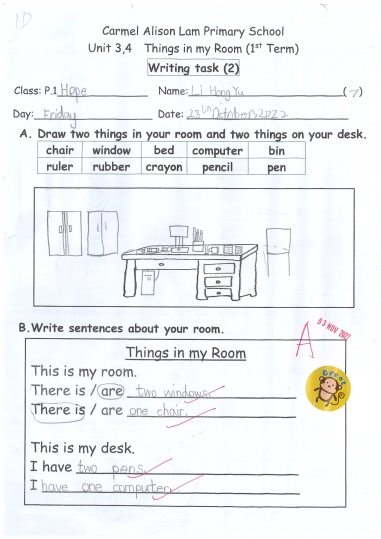 1D
Carmel Alison Lam Primary School
Unit 3,4 Things in my Room (1st Term)
Writing task (2)
Class: P.1 Hope Name: Li Hong Yu (7)
Day: Friday Date: 28th October 2022
A. Draw two things in your room and two things on your desk.
chair window bed computer bin
ruler rubber crayon pencil pen
B. Write sentences about your room.
A 03 NOV 2022
Things in my Room
This is my room.
There is / are two windows.
There is / are one chair.
Great
This is my desk.
I have two pens.
I have one computer.